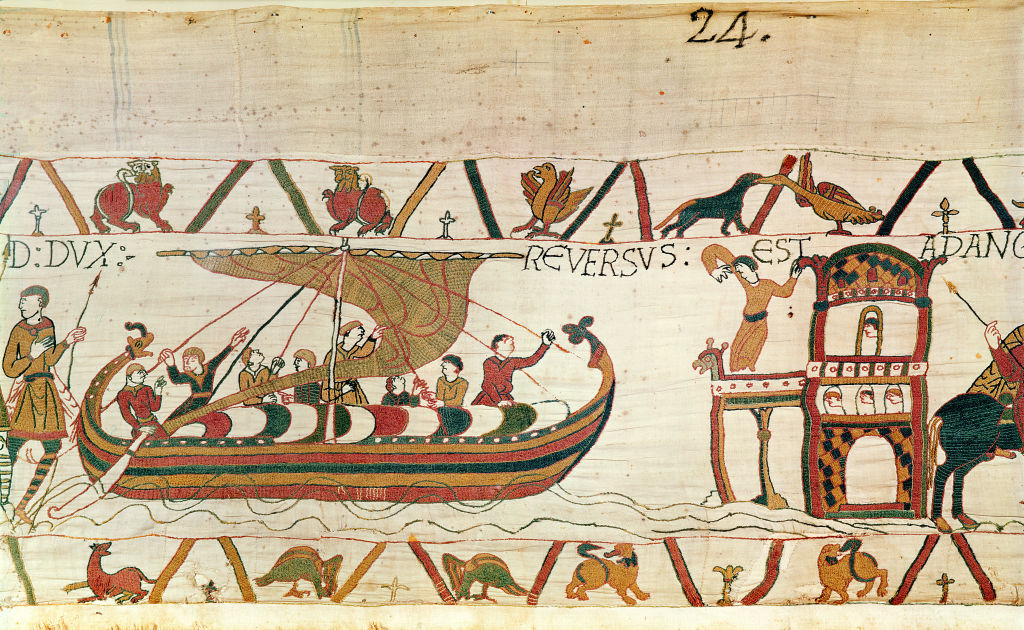 24.
D: DVX:- REVERSVS: EST ADANG